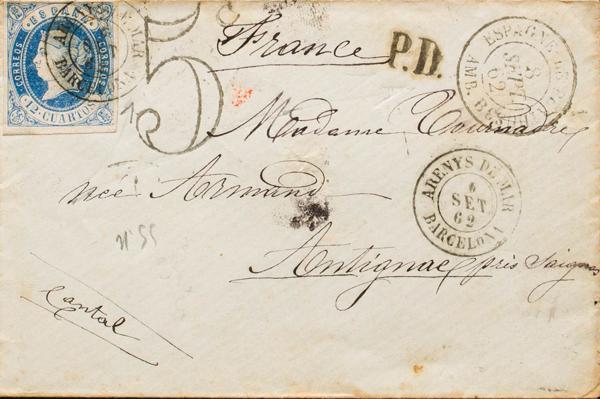 ESPAÑA
CORREOS
12 CUARTOS
5
France
P.D.
ESPAGNE
8
SEPT
62
AMB.
Madame Tournadre
née Armand
ARENYS DE MAR
6
SET
62
BARCELONA
Antignac près Saignes
Nº 55
Cantal